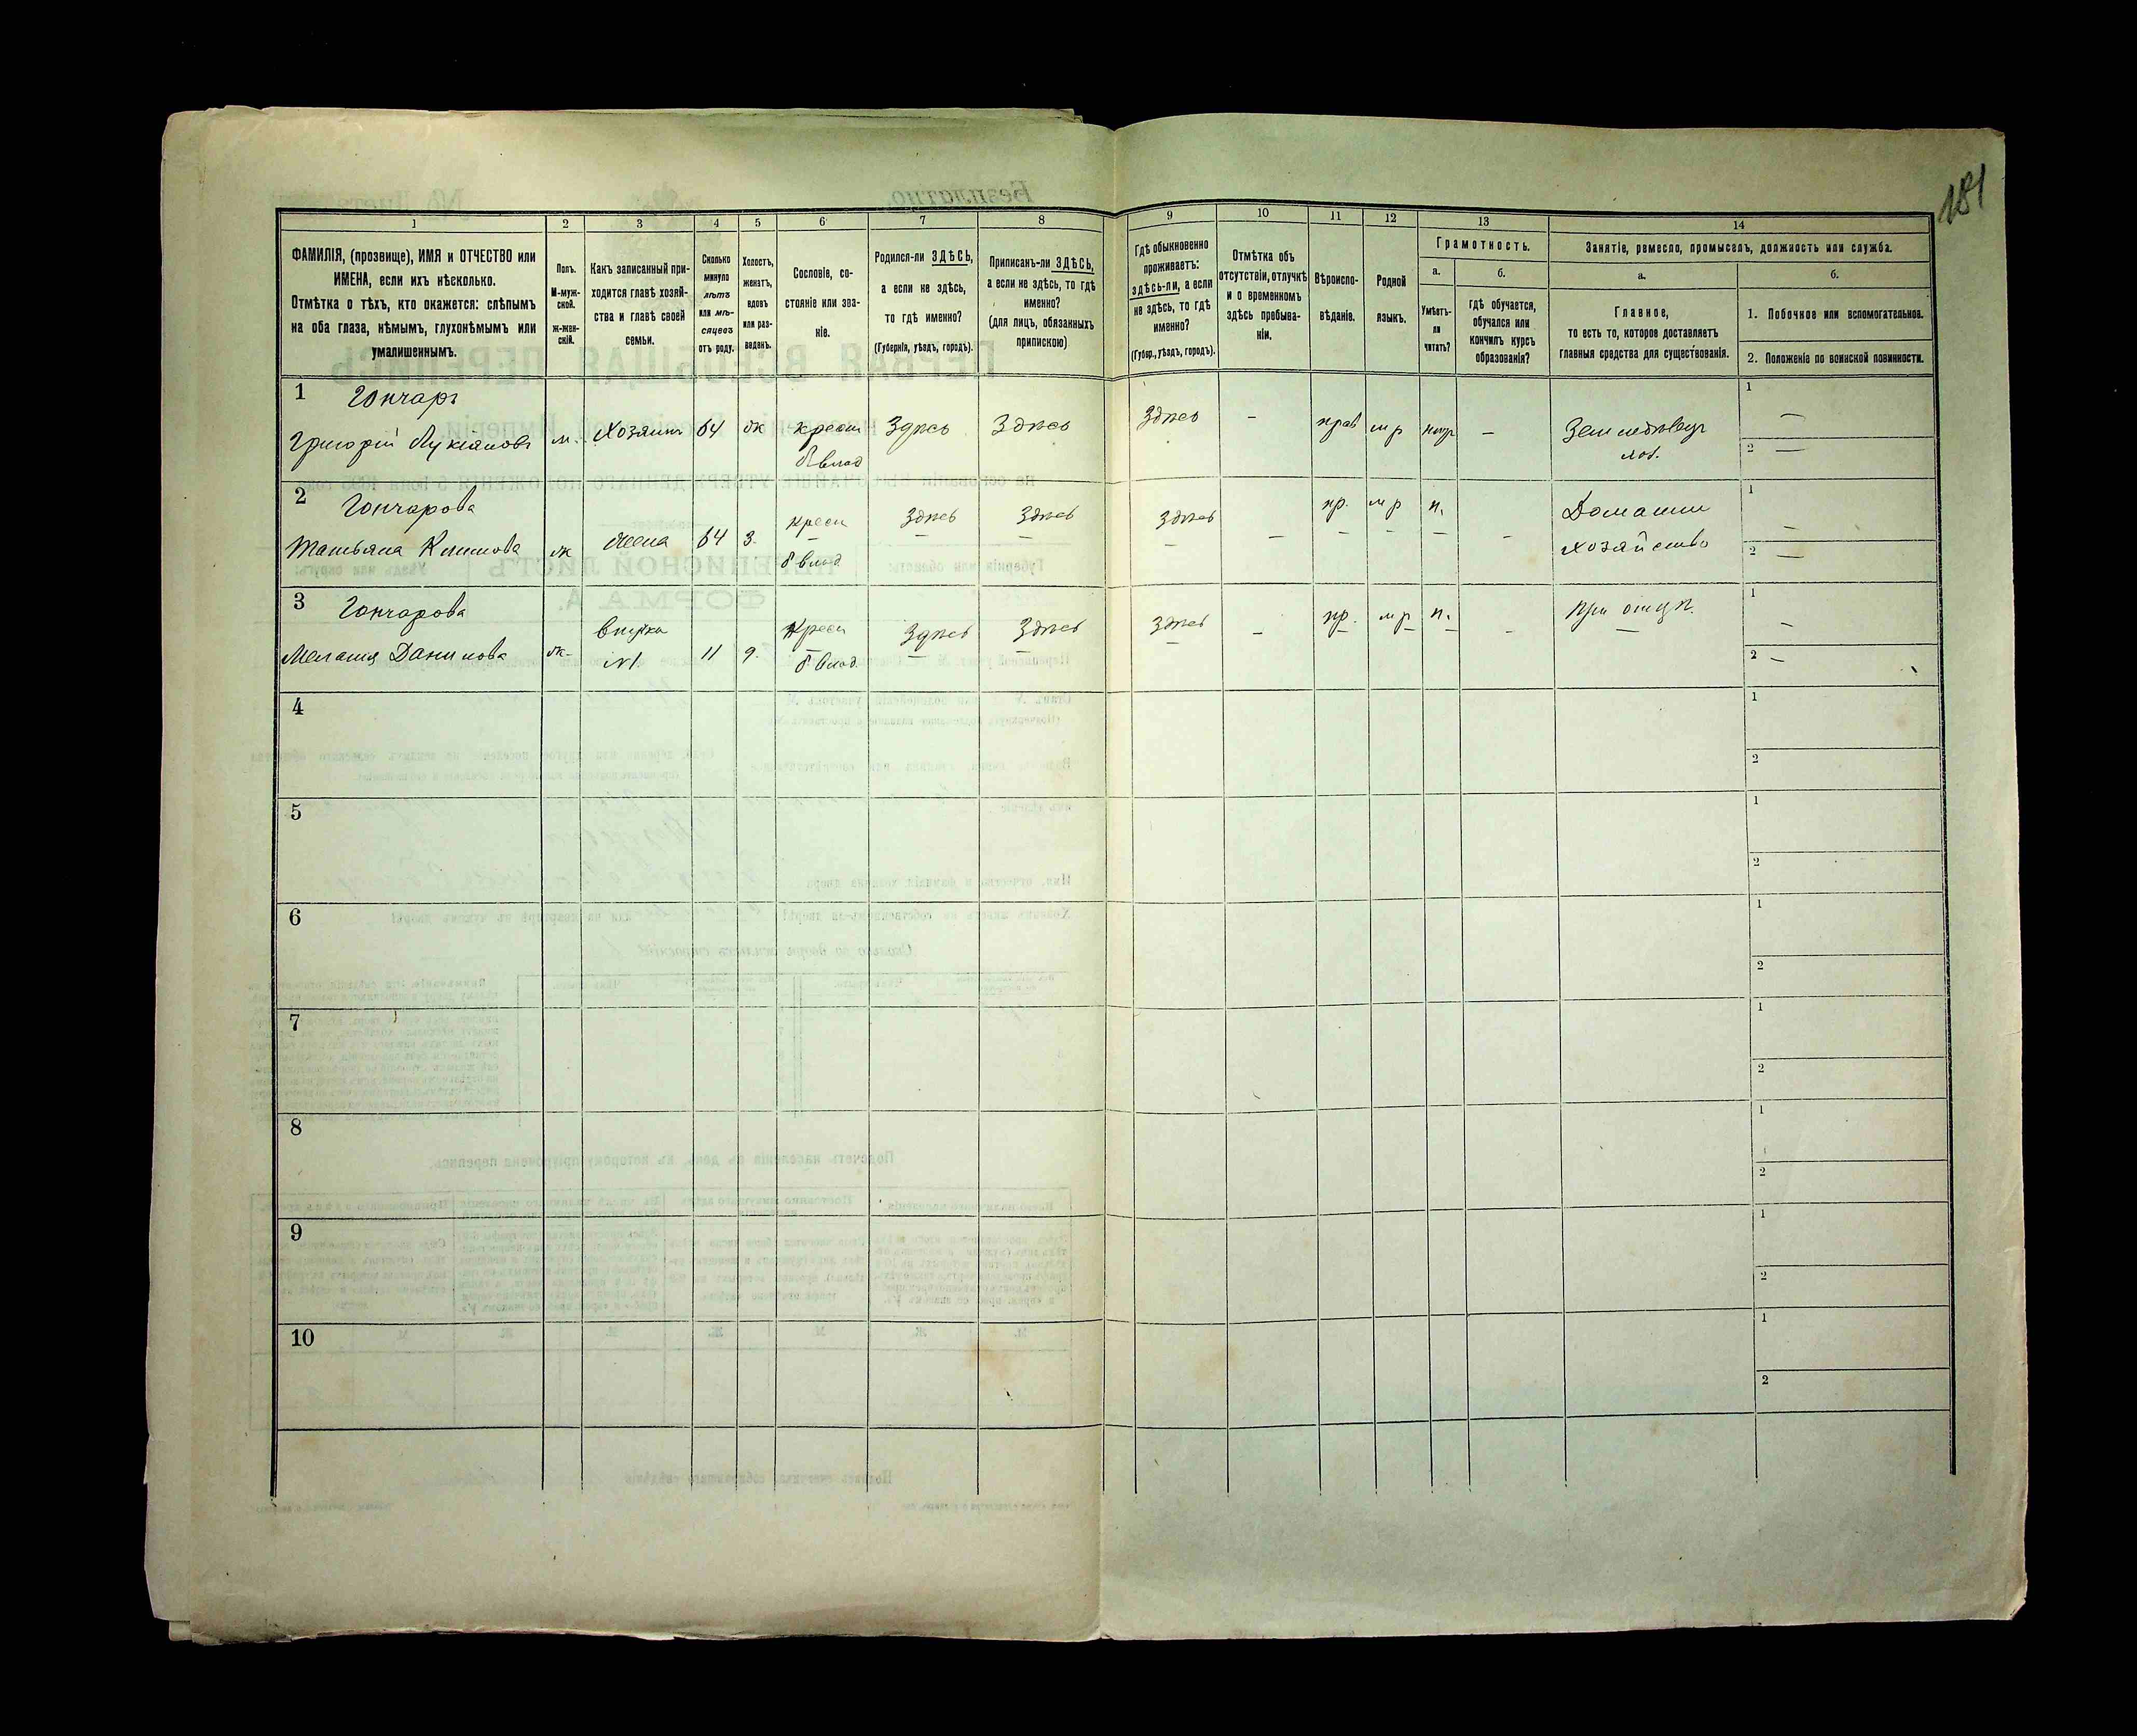 181
1 2 3 4 5 6 7 8 9 10 11 12 13 14
ФАМИЛІЯ, (прозвище), ИМЯ и ОТЧЕСТВО или
ИМЕНА, если ихъ нѣсколько.
Отмѣтка о тѣхъ, кто окажется: слѣпымъ
на оба глаза, нѣмымъ, глухонѣмымъ или
умалишеннымъ.
Полъ.
М-муж-
ской.
ж-жен-
скій.
Какъ записанный при-
ходится главѣ хозяй-
ства и главѣ своей
семьи.
Сколько
минуло
лѣтъ
или мѣ-
сяцевъ
отъ роду.
Холостъ,
женатъ,
вдовъ
или раз-
веденъ.
Сословіе, со-
стояніе или зва-
ніе.
Родился-ли ЗДѢСЬ,
а если не здѣсь,
то гдѣ именно?
(Губернія, уѣздъ, городъ).
Приписанъ-ли ЗДѢСЬ,
а если не здѣсь, то гдѣ
именно?
(для лицъ, обязанныхъ
припискою)
Гдѣ обыкновенно
проживаетъ:
здѣсь-ли, а если
не здѣсь, то гдѣ
именно?
(Губер., уѣздъ, городъ).
Отмѣтка объ
отсутствіи, отлучкѣ
и о временномъ
здѣсь пребыва-
ніи.
Вѣроиспо-
вѣданіе.
Родной
языкъ.
Грамотность.
а. б.
Умѣетъ-
ли
читать?
гдѣ обучается,
обучался или
кончилъ курсъ
образованія?
Занятіе, ремесло, промыселъ, должность или служба.
а. б.
Главное,
то есть то, которое доставляетъ
главныя средства для существованія.
1. Побочное или вспомогательное.
2. Положеніе по воинской повинности.
1 Гончаръ
Григорій Лукіановъ м. Хозяинъ 64 ж крест Здѣсь Здѣсь Здѣсь - прав мр —
б влад
1 —
2 —
2 Гончарова
Татьяна Климова ж жена 64 з. крест Здѣсь Здѣсь Здѣсь — пр. мр н. - Домашн
б влад хозяйство
1 —
2 —
3 Гончарова
Мелания Данилова ж- внучка 11 9. крест Здѣсь Здѣсь Здѣсь — пр. мр н. - при отцѣ
№1 б. влад.
1 —
2 —
4
1
2
5
1
2
6
1
2
7
1
2
8
1
2
9
1
2
10
1
2